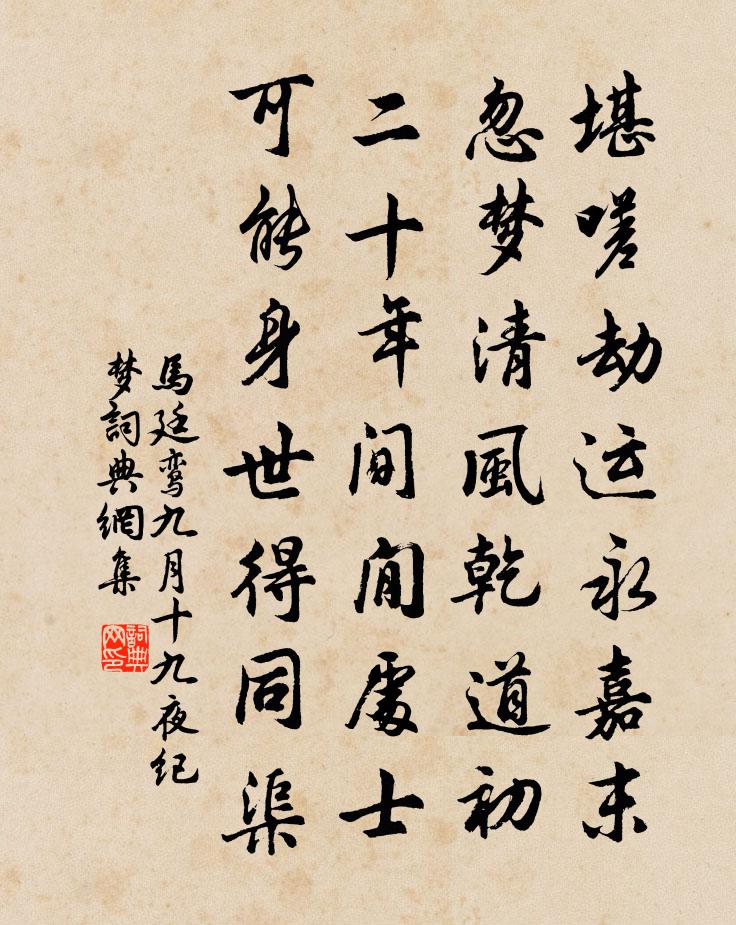 堪嗟劫运永嘉末
忽梦清風乾道初
二十年间闲處士
可能身世得同渠
馬廷鸾九月十九夜纪
梦詞典網集
詞典
网印